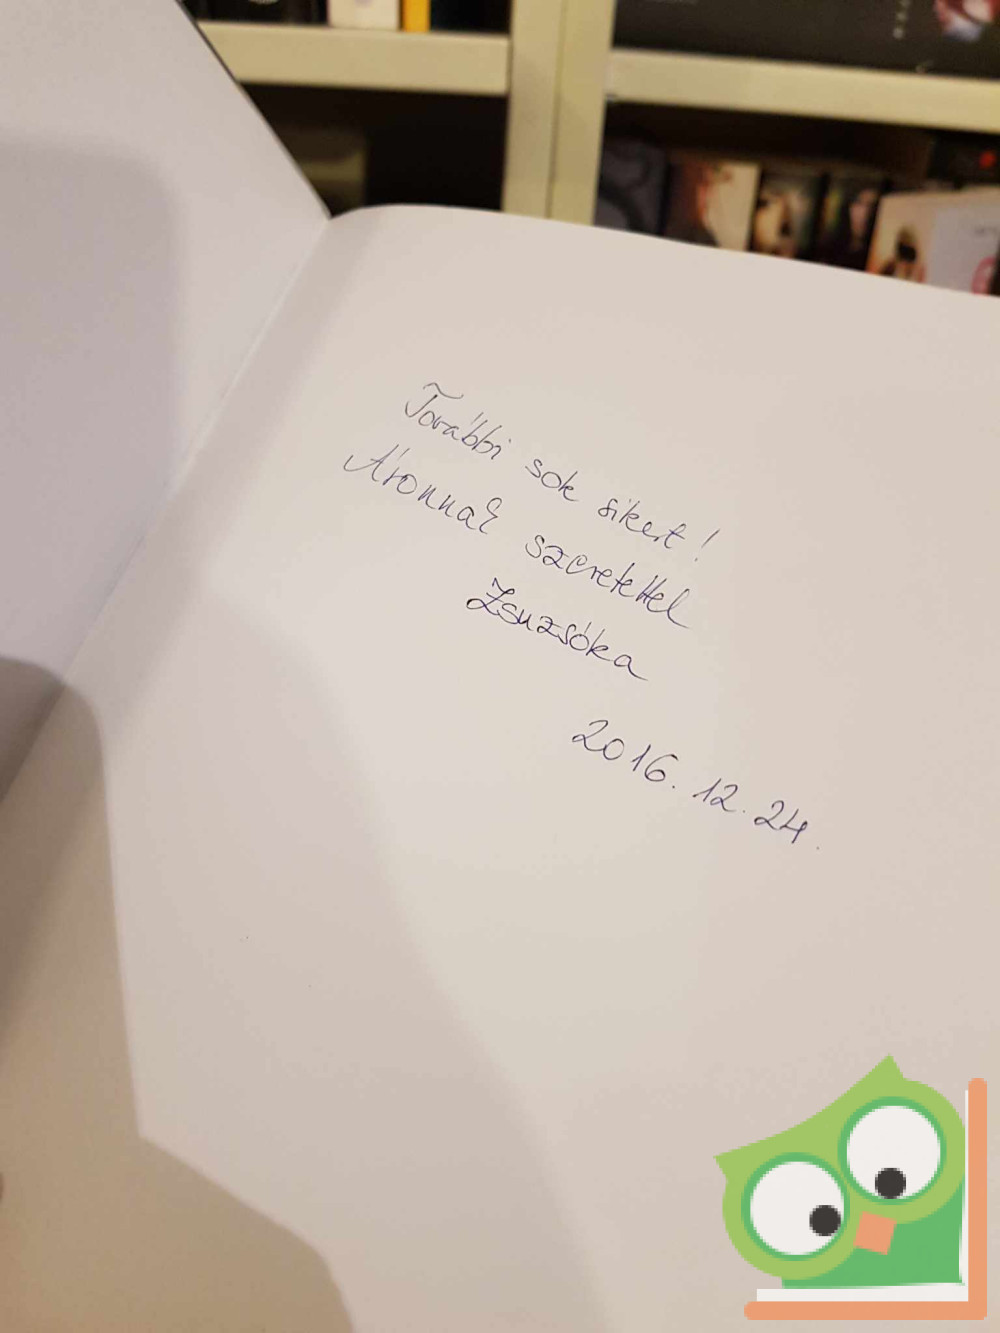 További sok sikert!
Áronnak szeretettel
Zsuzsóka
2016. 12. 24.